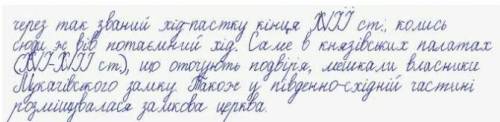 через так званий хід-пастку кінця XVII ст., колись
сюди ж вів потаємний хід. Саме в князівських палатах
(XVI-XVII ст.), що оточують подвір'я, мешкали власники
Мукачівського замку. Також у південно-східній частині
розміщувалася замкова церква.